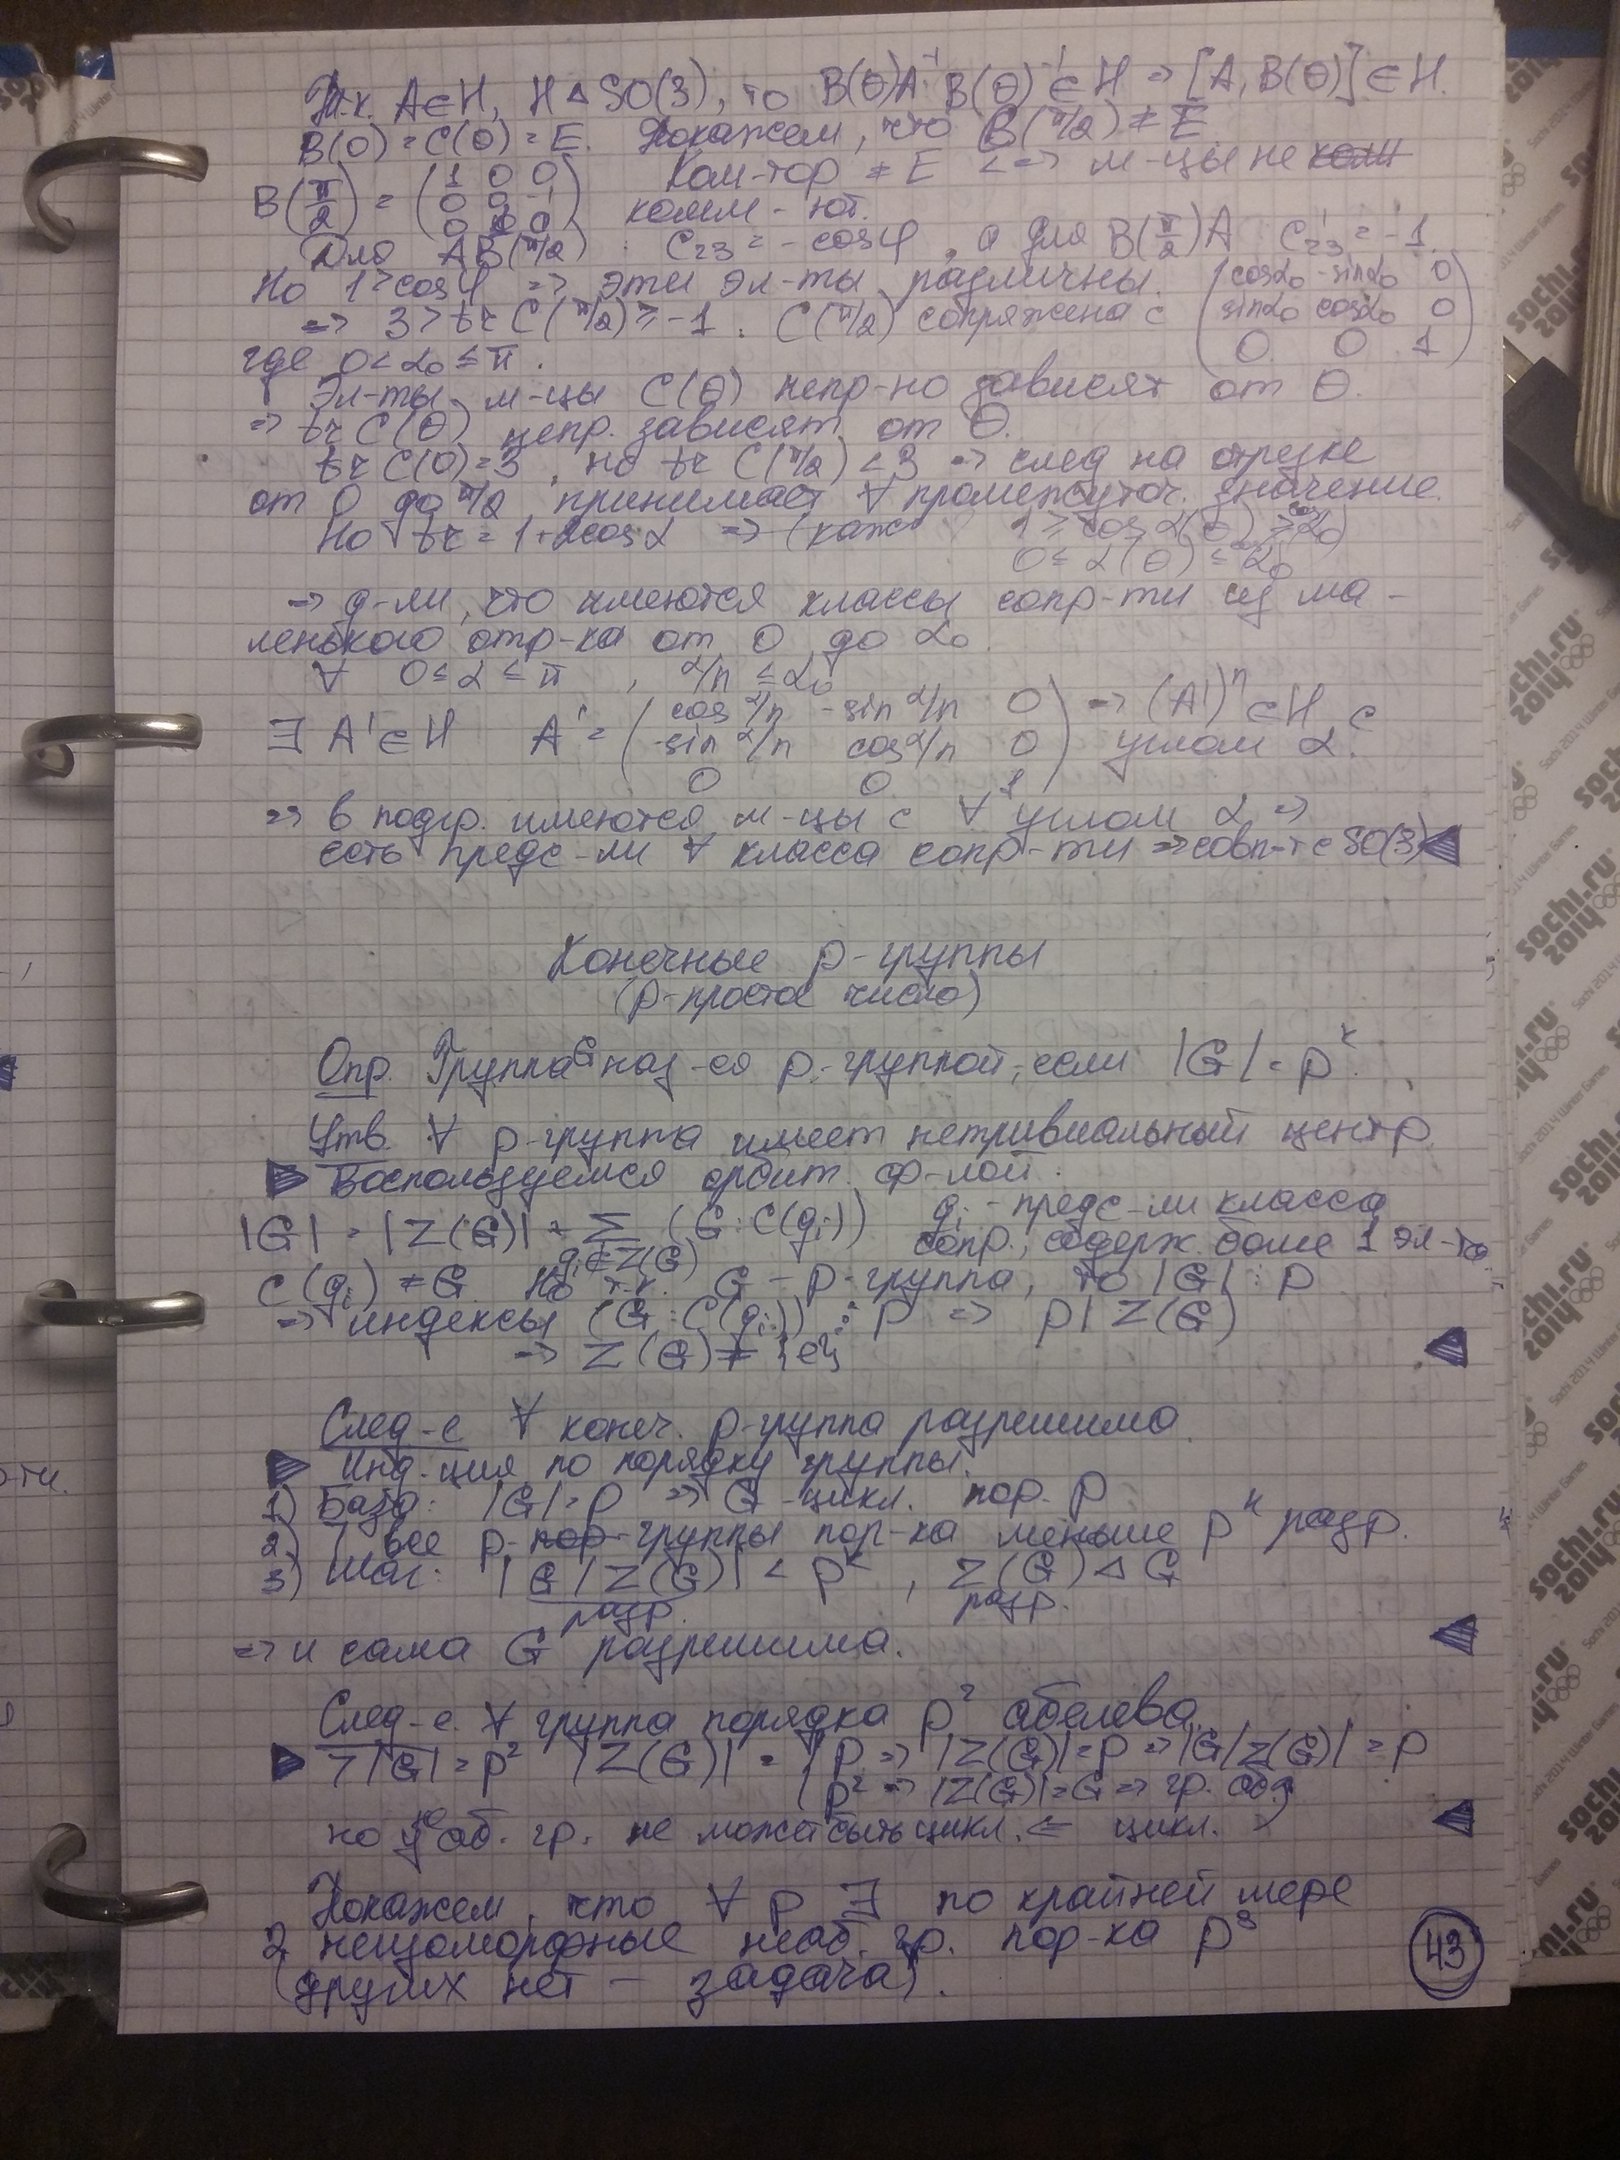 Т.к. A∈H, H ⊲ SO(3), то B(θ)A⁻¹B(θ)⁻¹∈H ⇒ [A, B(θ)]∈H.
B(0) = C(0) = E. Покажем, что C(π/2) ≠ E
Ком-тор ≠ E <=> м-цы не
B(π/2) = (1 0 0
0 0 -1
0 1 0) комм-ют.
Для AB(π/2) : C₂₃ = -cosφ, а для B(π/2)A C'₂₃ = -1.
Но 1>cosφ ⇒ эти эл-ты различны.
⇒ 3 > tr C(π/2) ≥ -1. C(π/2) сопряжена с (cosα₀ -sinα₀ 0
sinα₀ cosα₀ 0
0 0 1)
где 0<α₀≤π.
Эл-ты м-цы C(θ) непр-но зависят от θ.
⇒ tr C(θ) непр. зависят от θ.
tr C(0)=3, но tr C(π/2) <3 ⇒ след на отрезке
от 0 до π/2 принимает ∀ промежуточ. значение.
Но tr = 1+2cosα ⇒ 1 ≥ cosα(θ) ≥ cosα₀
0 ≤ α(θ) ≤ α₀
⇒ д-ли, что имеются классы сопр-ти из ма-
ленького отр-ка от 0 до α₀
∀ 0≤α≤π, α/n ≤α₀
∃ A'∈H A' = (cos α/n -sin α/n 0
sin α/n cos α/n 0
0 0 1) ⇒ (A')ⁿ∈H с
углом α.
⇒ в подгр. имеются м-цы с ∀ углом α ⇒
есть предс-ли ∀ класса сопр-ти ⇒ совп-т с SO(3) ◀
Конечные p-группы
(p-простое число)
Опр. Группа G наз-ся p-группой, если |G| = pᵏ.
Утв. ∀ p-группа имеет нетривиальный центр.
▶ Воспользуемся орбит. ф-лой.
|G| = |Z(G)| + Σ (G : C(gᵢ)) gᵢ - предс-ли класса
gᵢ∉Z(G) сопр., содерж. более 1 эл-та
C(gᵢ) ≠ G. Но т.к. G - p-группа, то |G| ⋮ p
⇒ индексы (G : C(gᵢ)) ⋮ p ⇒ p | Z(G)
⇒ Z(G) ≠ {e} ◀
След-е ∀ конеч. p-группа разрешима.
▶ Инд-ция по порядку группы.
1) База: |G| = p ⇒ G - цикл. пор. p
2) ] все p-группы пор-ка меньше pᵏ разр.
3) Шаг: |G/Z(G)| < pᵏ, Z(G) ⊲ G
разр. разр.
⇒ и сама G разрешима. ◀
След-е. ∀ группа порядка p² абелева.
▶ ] |G| = p² |Z(G)| = { p ⇒ |Z(G)|=p ⇒ |G/Z(G)| = p
p² ⇒ |Z(G)|=G ⇒ гр. аб.
но у аб. гр. не может быть цикл. ⇐ цикл. ◀
Покажем, что ∀ p ∃ по крайней мере
2 неизоморфные неаб. гр. пор-ка p³
(других нет — задача).
43
sochi.ru
2014